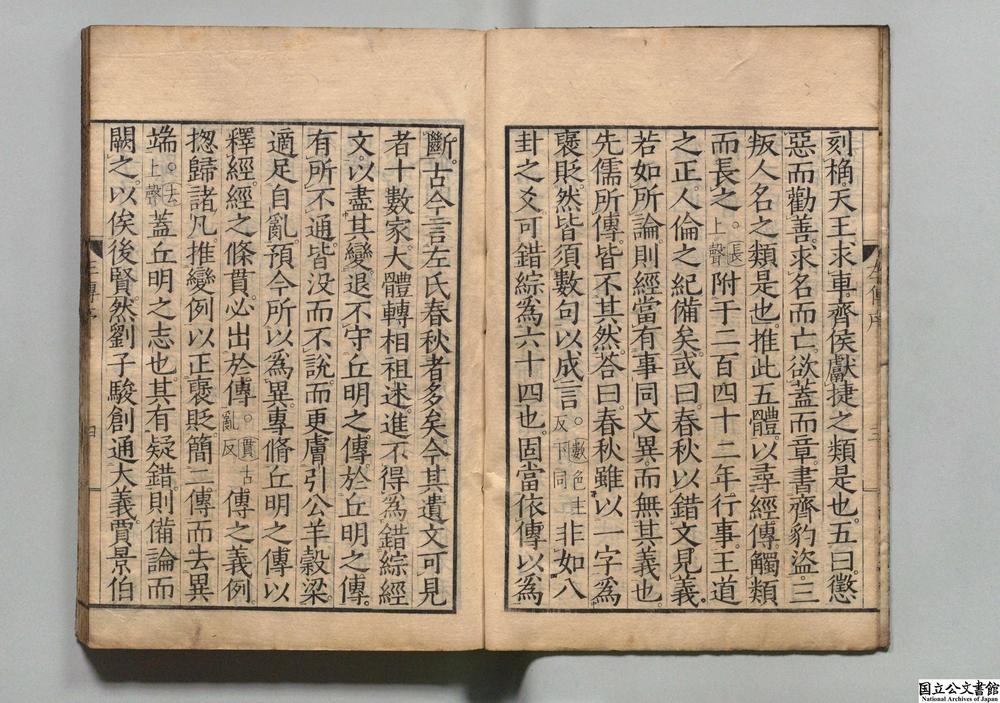 刻桷天王求車齊侯獻捷之類是也五曰懲
惡而勸善求名而亡欲蓋而章書齊豹盜三
叛人名之類是也推此五體以尋經傳觸類
而長之○長上聲附于二百四十二年行事王道
之正人倫之紀備矣或曰春秋以錯文見義
若如所論則經當有事同文異而無其義也
先儒所傳皆不其然荅曰春秋雖以一字爲
褒貶然皆須數句以成言○數色主反下同非如八
卦之爻可錯綜爲六十四也固當依傳以爲
左傳序
三
斷古今言左氏春秋者多矣今其遺文可見
者十數家大體轉相祖述進不得爲錯綜經
文以盡其變退不守丘明之傳於丘明之傳
有所不通皆没而不說而更膚引公羊穀梁
適足自亂預今所以爲異專脩丘明之傳以
釋經經之條貫必出於傳○貫古亂反傳之義例
揔歸諸凡推變例以正褒貶簡二傳而去異
端○去上聲蓋丘明之志也其有疑錯則備論而
闕之以俟後賢然劉子駿創通大義賈景伯
四
国立公文書館
National Archives of Japan